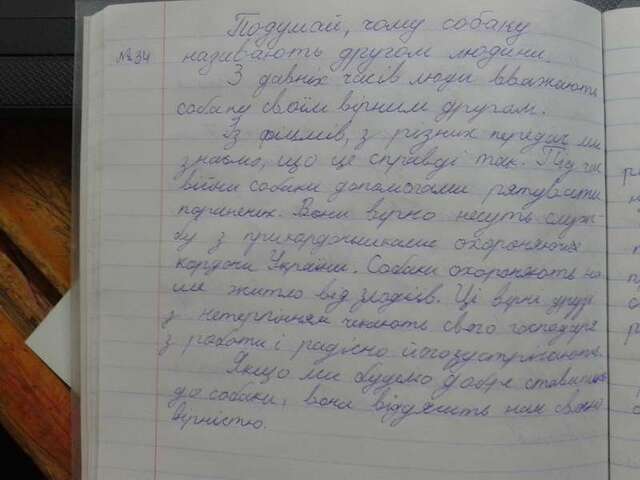 Подумай, чому собаку
№34 називають другом людини.
З давніх часів люди вважають
собаку своїм вірним другом.
Із фільмів, з різних передач ми
знаємо, що це справді так. Під час
війни собаки допомогали рятувати
поранених. Вони вірно несуть служ-
бу з прикордонниками охороняючи
кордони України. Собаки охороняють на-
ше житло від злодіїв. Ці вірні друзі
з нетерпінням чекають свого господаря
з роботи і радісно його зустрічають.
Якщо ми будемо добре ставитись
до собаки, вона віддячить нам своєю
вірністю.